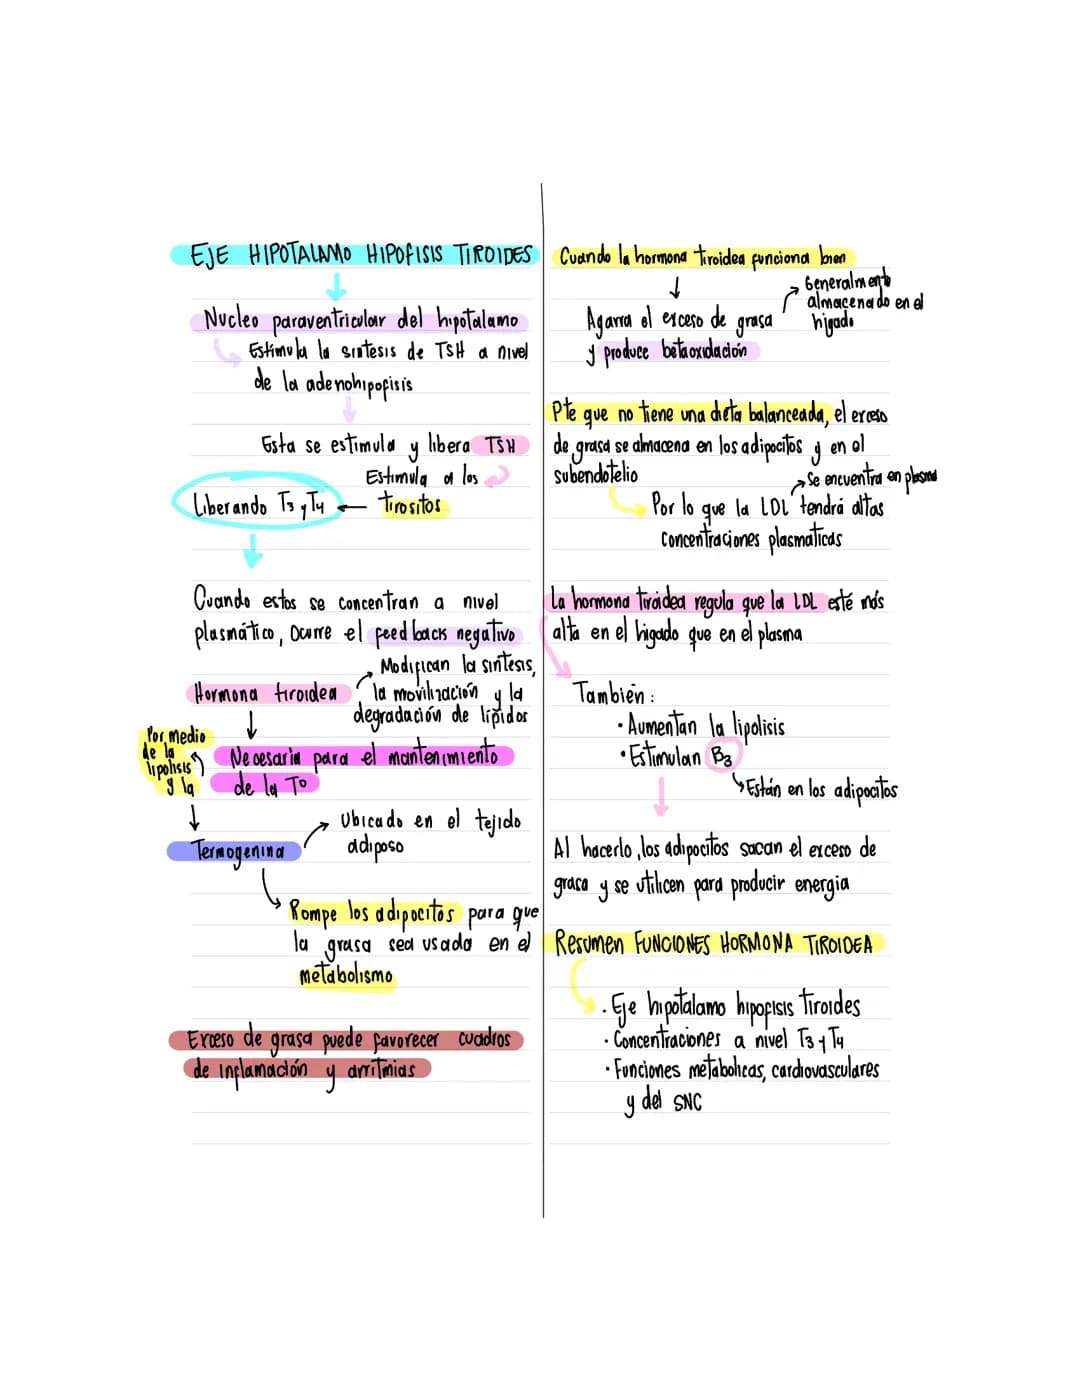 EJE HIPOTALAMO HIPOFISIS TIROIDES
Nucleo paraventricular del hipotalamo
Estimula la sintesis de TSH a nivel
de la adenohipofisis
Esta se estimula y libera TSH
Estimula a los
tirositos
Liberando T3 y T4
Cuando estos se concentran a nivel
plasmático, ocurre el feedback negativo
Modifican la sintesis,
la movilización y la
degradación de lípidos
Hormona tiroidea
Por medio
de la
lipolisis
y la
Necesaria para el mantenimiento
de la T°
Ubicado en el tejido
adiposo
Termogenina
Rompe los adipocitos para que
la grasa sea usada en el
metabolismo
Exceso de grasa puede favorecer cuadros
de inflamación y arritmias
Cuando la hormona tiroidea funciona bien
Generalmente
almacenado en el
higado
Agarra el exceso de grasa
y produce betaoxidación
Pte que no tiene una dieta balanceada, el exceso
de grasa se almacena en los adipocitos y en el
subendotelio
Se encuentra en plasma
Por lo que la LDL tendrá altas
concentraciones plasmaticas
La hormona tiroidea regula que la LDL esté más
alta en el higado que en el plasma
También:
• Aumentan la lipolisis
• Estimulan B3
Están en los adipocitos
Al hacerlo, los adipocitos sacan el exceso de
grasa y se utilicen para producir energia
Resumen FUNCIONES HORMONA TIROIDEA
• Eje hipotalamo hipofisis tiroides
• Concentraciones a nivel T3 y T4
• Funciones metabolicas, cardiovasculares
y del SNC